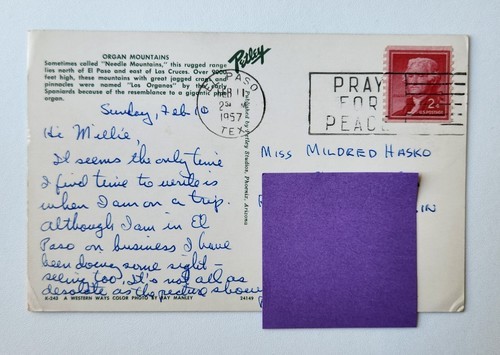 ORGAN MOUNTAINS
Sometimes called "Needle Mountains," this rugged range
lies north of El Paso and east of Las Cruces. Over 9000
feet high, these mountains with great jagged crags and
pinnacles were named "Los Organos" by the early
Spaniards because of the resemblance to a gigantic pipe
organ.
Petley
EL PASO
FEB 11
1957
TEX.
PRAY
FOR
PEACE
2¢
U.S. POSTAGE
Published by Petley Studios, Phoenix, Arizona
Sunday, Feb 10
Hi Millie,
It seems the only time
I find time to write is
when I am on a trip.
Although I am in El
Paso on business I have
been doing some sight-
seeing too. It's not all as
desolate as the picture shows
MISS MILDRED HASKO
IN
K-242 A WESTERN WAYS COLOR PHOTO BY RAY MANLEY
24149